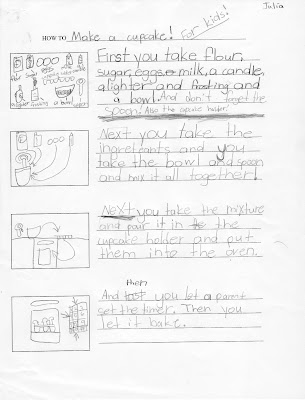 Julia
HOW TO Make a cupcake! For kids!
First you take flour,
sugar, eggs milk, a candle,
a lighter and frosting, and
a bowl. And don't forget the
spoon! Also the cupcake holder!
Next you take the
ingreteants and you
take the bowl and spoon
and mix it all together!
Next you take the mixture
and pour it in the
cupcake holder and put
them into the oven.
then
And last you let a parent
set the timer. Then you
let it bake.